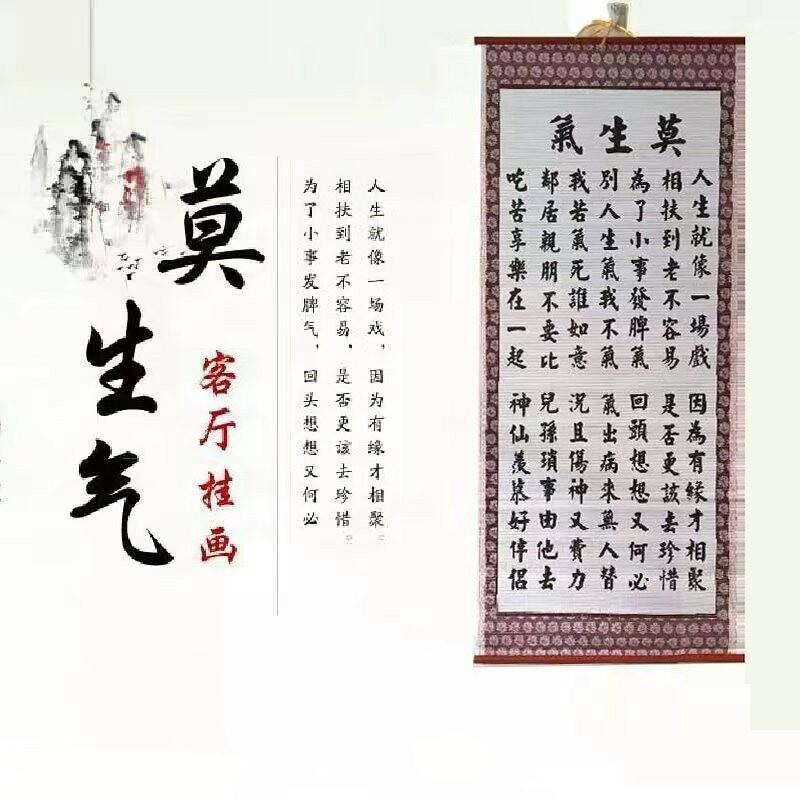 莫生气
客厅挂画
人生就像一场戏，因为有缘才相聚。
相扶到老不容易，是否更该去珍惜。
为了小事发脾气，回头想想又何必
莫生氣
人生就像一場戲 因為有緣才相聚
相扶到老不容易 是否更該去珍惜
為了小事發脾氣 回頭想想又何必
別人生氣我不氣 氣出病來無人替
我若氣死誰如意 況且傷神又費力
鄰居親朋不要比 兒孫瑣事由他去
吃苦享樂在一起 神仙羨慕好伴侶